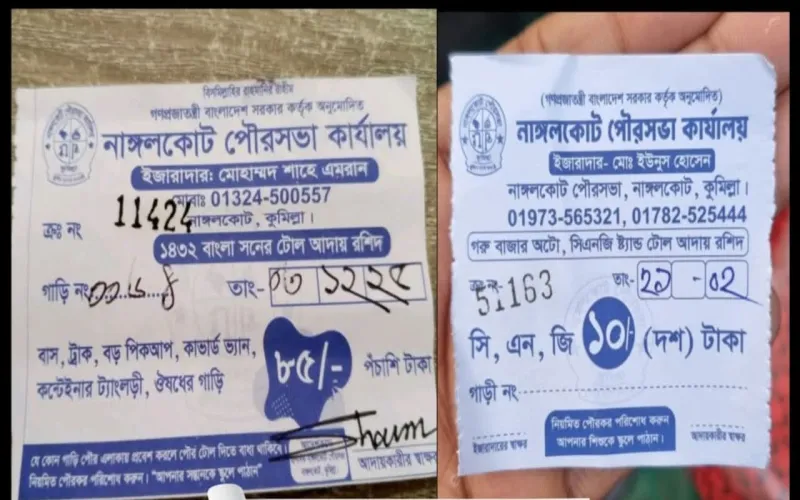 বিসমিল্লাহির রাহমানির রাহীম
গণপ্রজাতন্ত্রী বাংলাদেশ সরকার কর্তৃক অনুমোদিত
নাঙ্গলকোট পৌরসভা কার্যালয়
ইজারাদার: মোহাম্মদ শাহে এমরান
মোবা: 01324-500557
নাঙ্গলকোট, কুমিল্লা।
ক্রঃ নং 11424
১৪৩২ বাংলা সনের টোল আদায় রশিদ
গাড়ি নং
তাং- ০৩ ১২ ২৫
বাস, ট্রাক, বড় পিকআপ, কাভার্ড ভ্যান,
কন্টেইনার ট্যাংলড়ী, ঔষধের গাড়ি
৮৫/- পঁচাশি টাকা
যে কোন গাড়ি পৌর এলাকায় প্রবেশ করলে পৌর টোল দিতে বাধ্য থাকিবে
নিয়মিত পৌরকর পরিশোধ করুন। "আপনার সন্তানকে স্কুলে পাঠান"
আদায়কারীর স্বাক্ষর
(গণপ্রজাতন্ত্রী বাংলাদেশ সরকার কর্তৃক অনুমোদিত)
নাঙ্গলকোট পৌরসভা কার্যালয়
ইজারাদার- মোঃ ইউনুস হোসেন
নাঙ্গলকোট পৌরসভা, নাঙ্গলকোট, কুমিল্লা।
01973-565321, 01782-525444
গরু বাজার অটো, সিএনজি ষ্ট্যান্ড টোল আদায় রশিদ
ক্রঃ নং- 51163
তাং- ২৯ -০২
সি, এন, জি ১০/- (দশ) টাকা
গাড়ী নং
নিয়মিত পৌরকর পরিশোধ করুন
আপনার শিশুকে স্কুলে পাঠান।
ইজারাদারের স্বাক্ষর
আদায়কারীর স্বাক্ষর